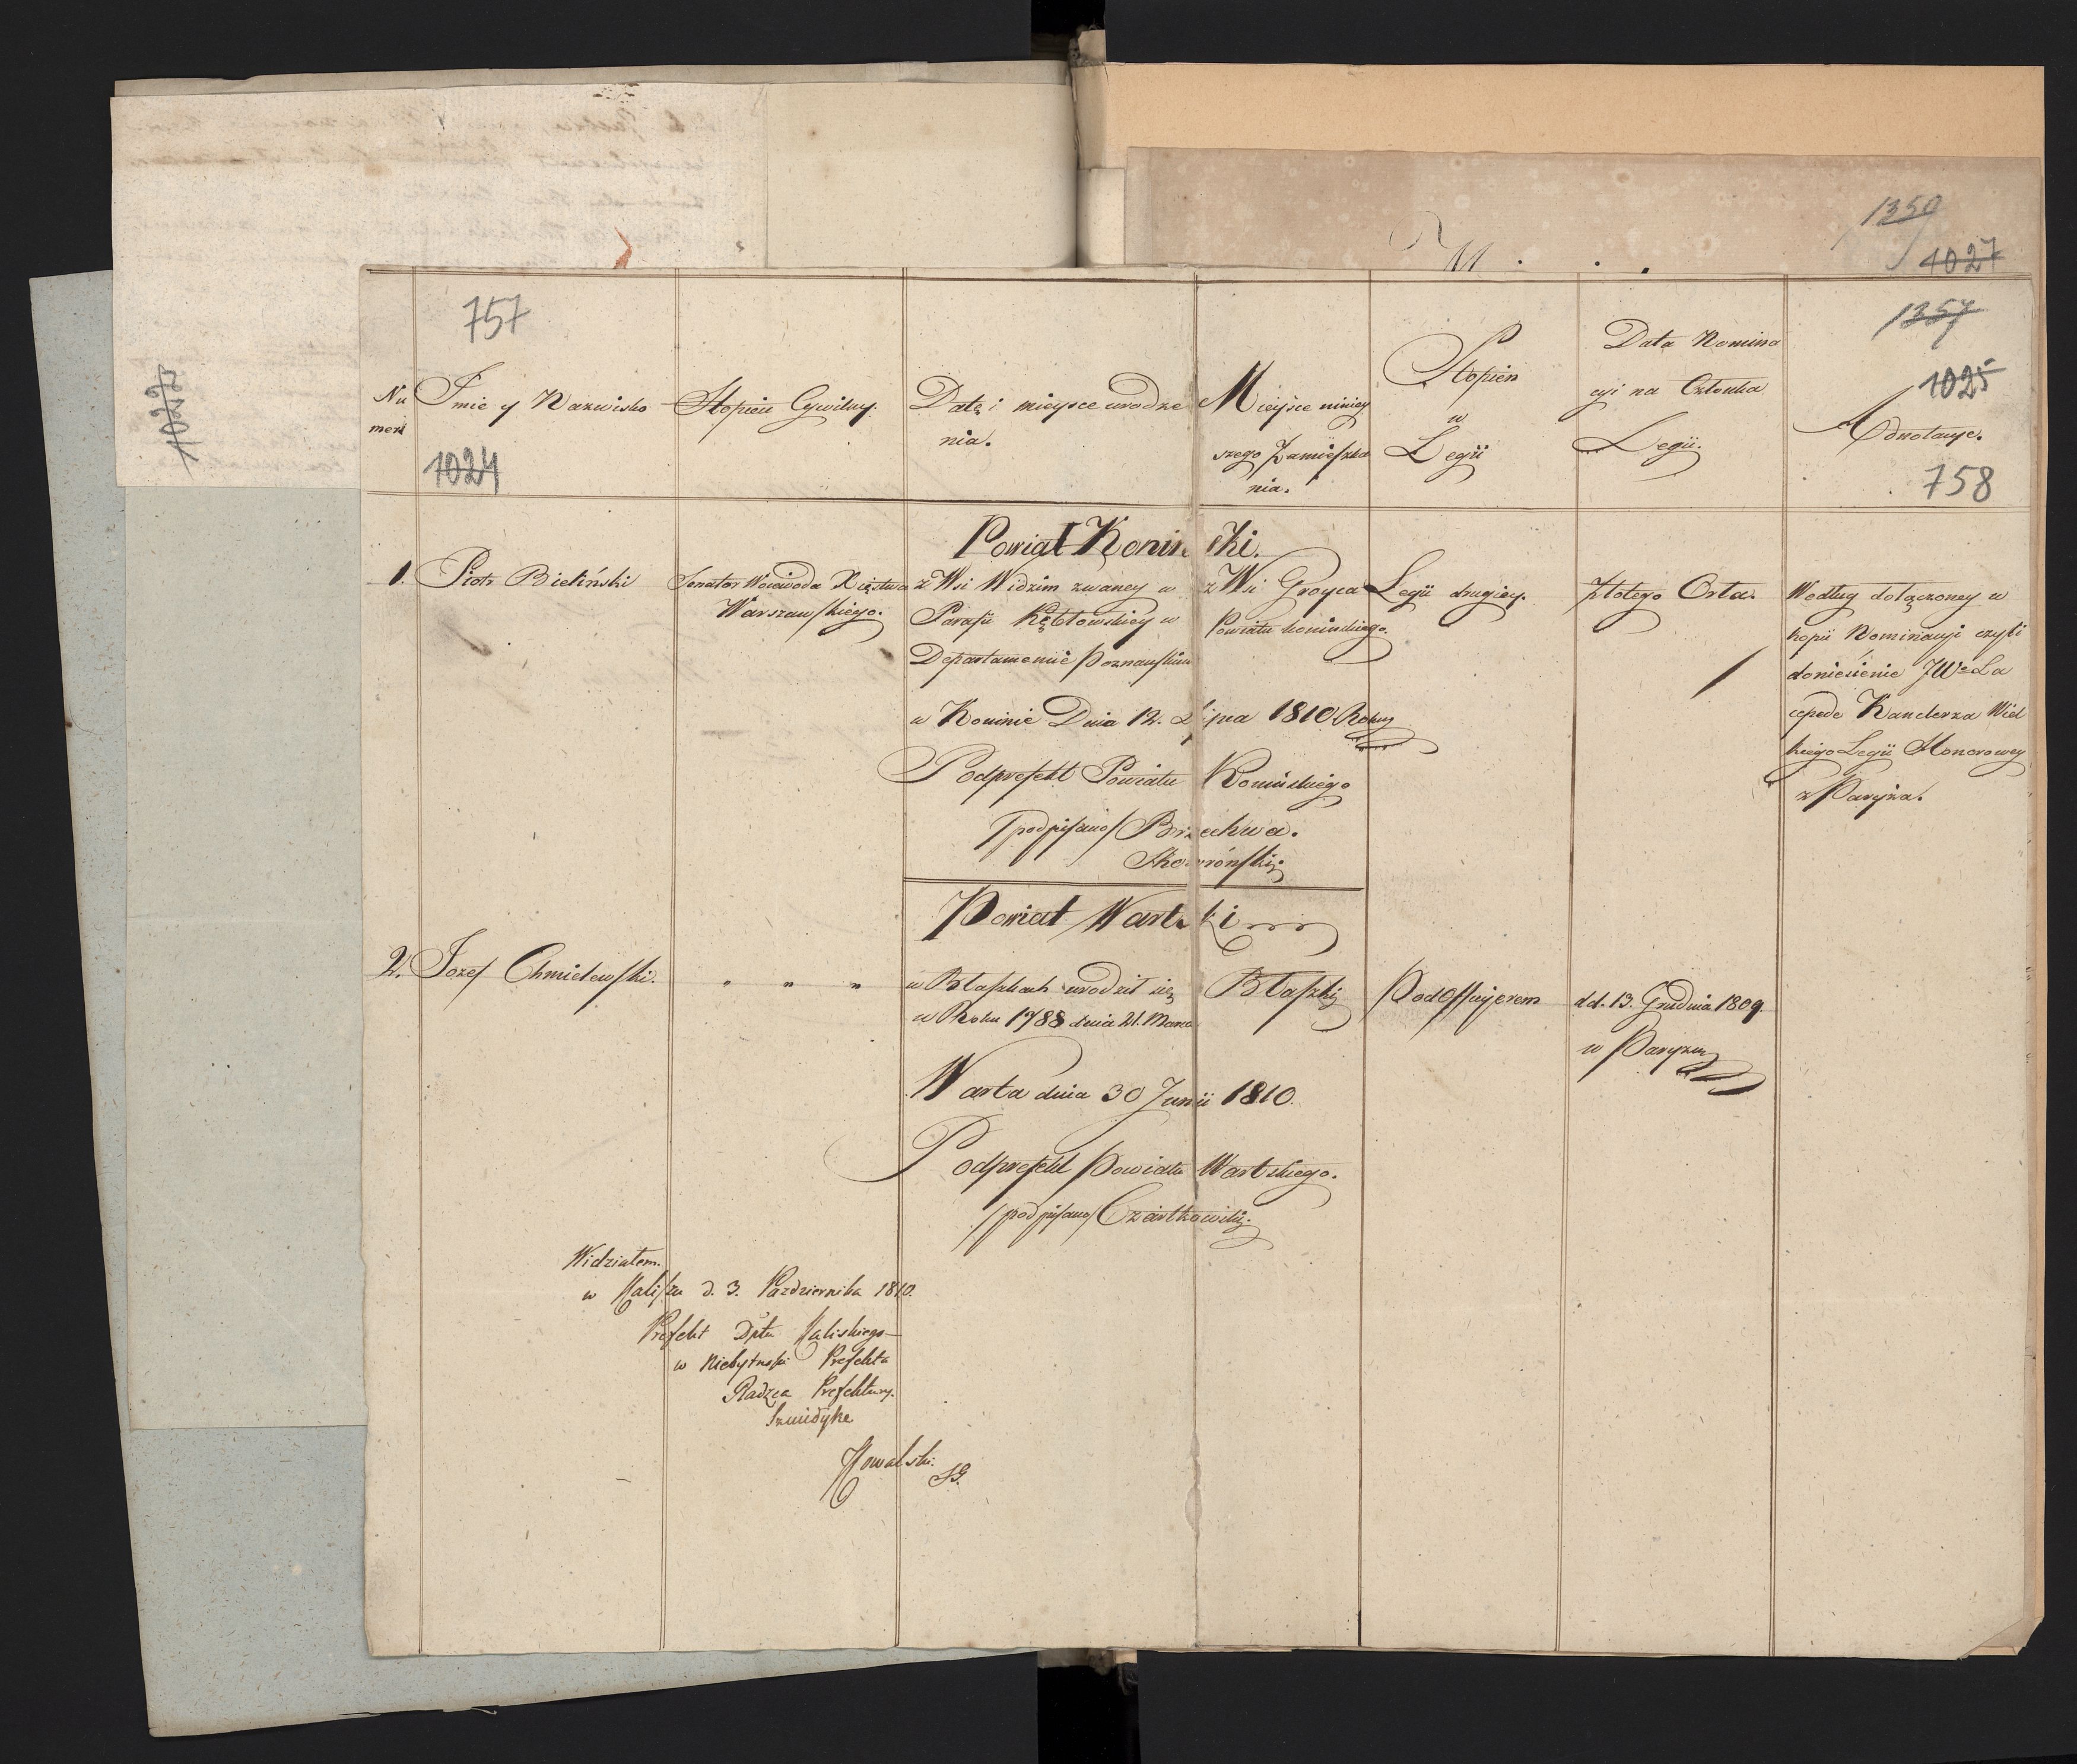 1359
1027
1027
757
1357
1025
Nu
mera
Imie y Nazwisko
Stopień Cywilny.
Datę i mieysce urodze
nia.
Mieysce niniey
szego Zamieszka
nia.
Stopien
w
Legii
Data Nomina
cyi na Członka
Legii.
Adnotacye.
1024
758
Powiat Koniński.
1. Piotr Bieliński
Senator Woiewoda Xięstwa
Warszawskiego.
z Wsi Widzim zwaney w
Parafii Kębłowskiey w
Departamencie Poznańskim
z Wsi Groyca
Powiatu konińskiego.
Legii drugiey.
Złotego Orła.
Według dołączoney w
kopii Nominacyi czyli
doniesienie JWo La
cepede Kanclerza Wiel
kiego Legii Honorowey
z Paryża.
w Koninie Dnia 12. Lipca 1810 Roku
Podprefekt Powiatu Konińskiego
/podpisano/ Brzechwa.
Skoroński
Powiat Wartski
2. Jozef Chmielewski.
" " "
w Błaszkach urodził się
w Roku 1788 dnia 21. Marca
Błaszki
Podofficyerem
dd. 13. Grudnia 1809.
w Paryżu
Warta dnia 30 Junii 1810.
Podprefekt Powiatu Wartskiego.
/podpisano/ Czartkowski
Widziałem.
w Kaliszu d. 3. Października 1810.
Prefekt Dptu Kaliskiego
w Niebytności Prefekta
Radzca Prefektury.
Kowalski.
SG.